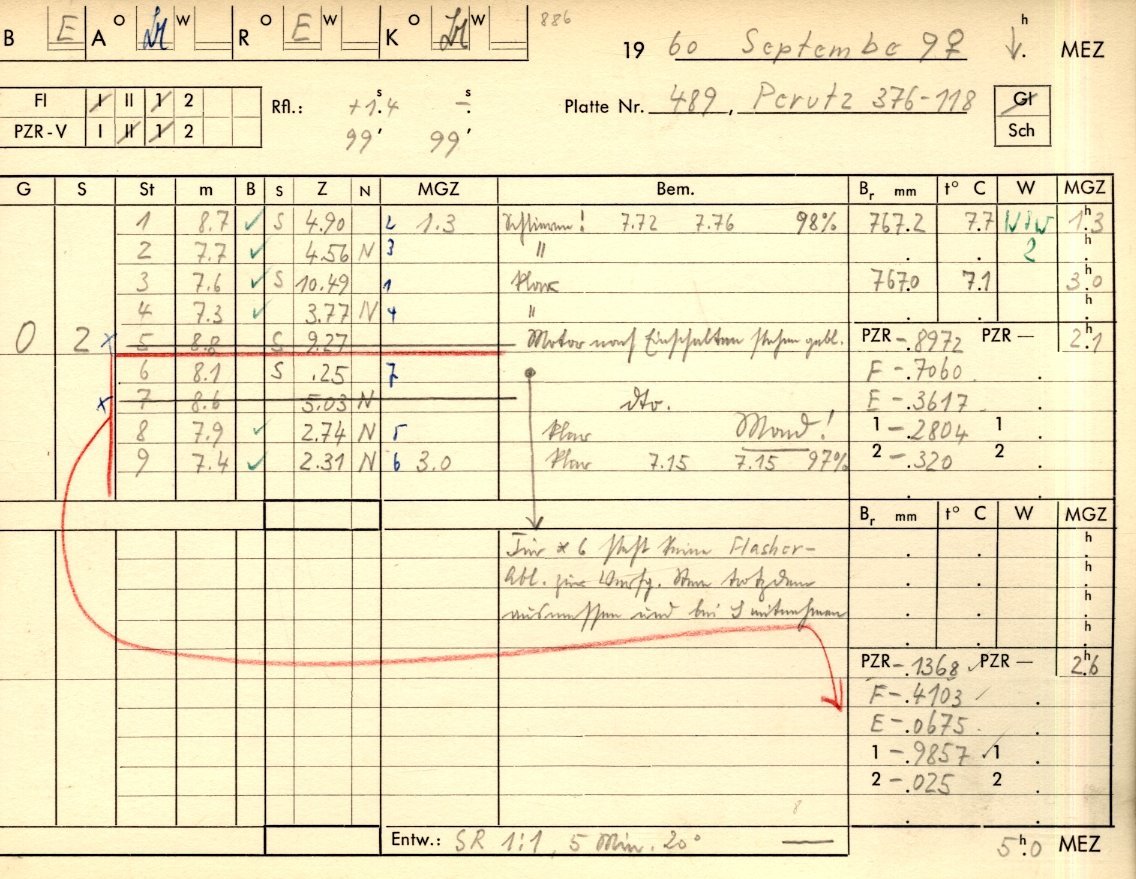 B E A O W R O E W K O W 886
19 60 September 9 ♀ h MEZ
Fl I II 1 2 Rfl.: +1.4 s - s Platte Nr. 489, Perutz 376-118 Gl
PZR-V I II 1 2 99' 99' Sch
G S St m B S Z N MGZ Bem. Br mm t° C W MGZ
1 8.7 ✓ S 4.90 2 1.3 Schlieren! 7.72 7.76 98% 767.2 7.7 NNW 1.3 h
2 7.7 ✓ 4.56 N 3 " 2 h
3 7.6 ✓ S 10.49 1 klar 767.0 7.1 3.0 h
4 7.3 ✓ 3.77 N 4 " h
0 2 x 5 8.8 S 9.27 Motor nach Einschalten stehen gebl. PZR -.8972 PZR — 2.1 h
6 8.1 S .25 7 F -.7060
x 7 8.6 5.03 N dto. E -.3617
8 7.9 ✓ 2.74 N 5 klar Mond! 1 -.2804 1
9 7.4 ✓ 2.31 N 6 3.0 klar 7.15 7.15 97% 2 -.320 2
Br mm t° C W MGZ
Für * 6 steht keine Flasher- h
Abl. zur Verfg. Stern trotzdem h
ausmessen und bei S mitnehmen h
h
PZR -.1368 ✓ PZR — 2.6 h
F -.4103 ✓
E -.0675
1 -.9857 ✓ 1
2 -.025 2
8
Entw.: SR 1:1, 5 Min. 20° — 5.0 h MEZ